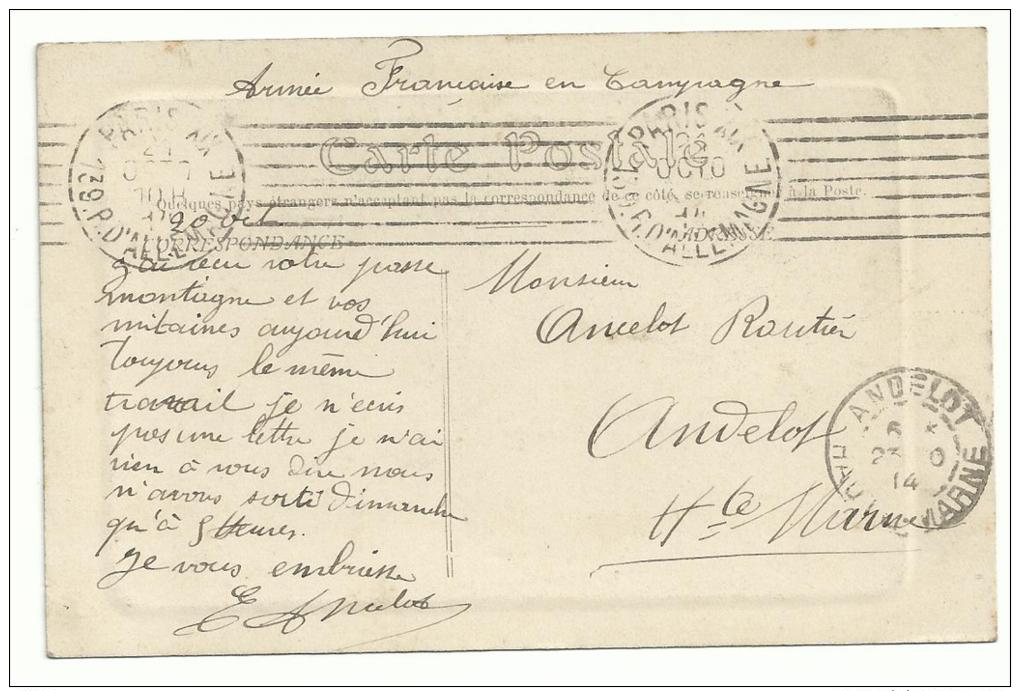 Armée Française en Campagne
Carte Postale
Quelques pays étrangers n'acceptant pas la correspondance de ce côté, se renseigner à la Poste.
20 Oct
CORRESPONDANCE
ADRESSE
J'ai reçu votre passe
montagne et vos
mitaines aujourd'hui
Toujours le même
travail je n'ecris
pas une lettre je n'ai
rien à vous dire nous
n'avons sorti dimanche
qu'à 5 heures.
Je vous embrasse
E Ancelot
Monsieur
Ancelot Rentier
Andelot
Hte Marne
PARIS
OCT
10 H
GARE P. D'ALLEMAGNE
PARIS
OCT
P. D'ALLEMAGNE
ANDELOT
14
HAUTE MARNE